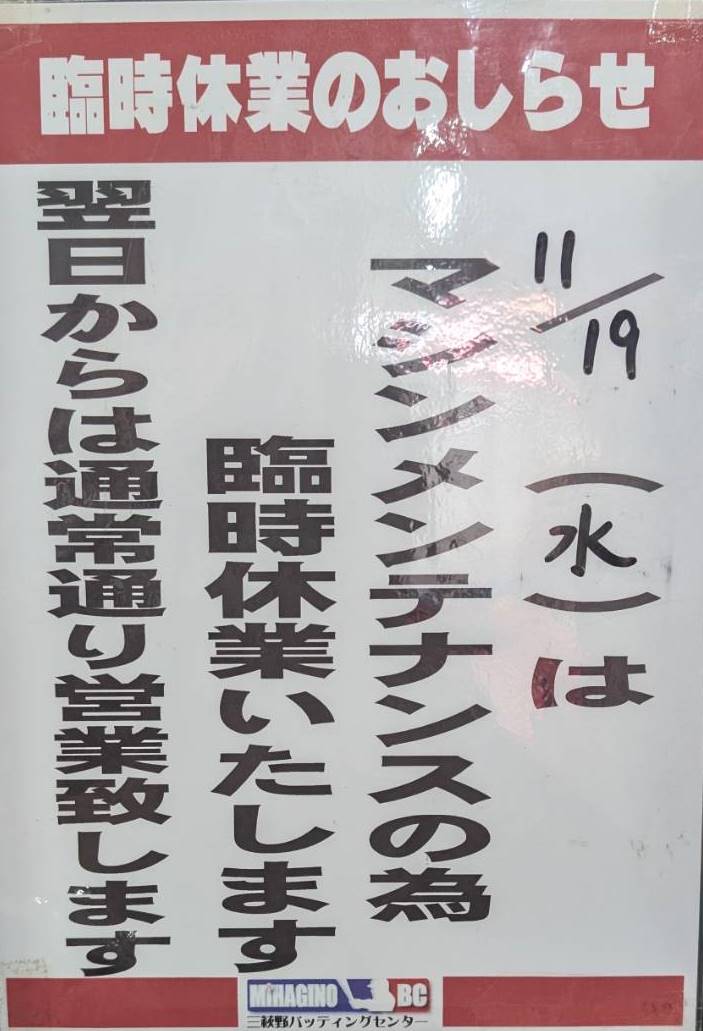 臨時休業のおしらせ
11/19(水)は
マシンメンテナンスの為
臨時休業いたします
翌日からは通常通り営業致します
MIHAGINO BC
三萩野バッティングセンター